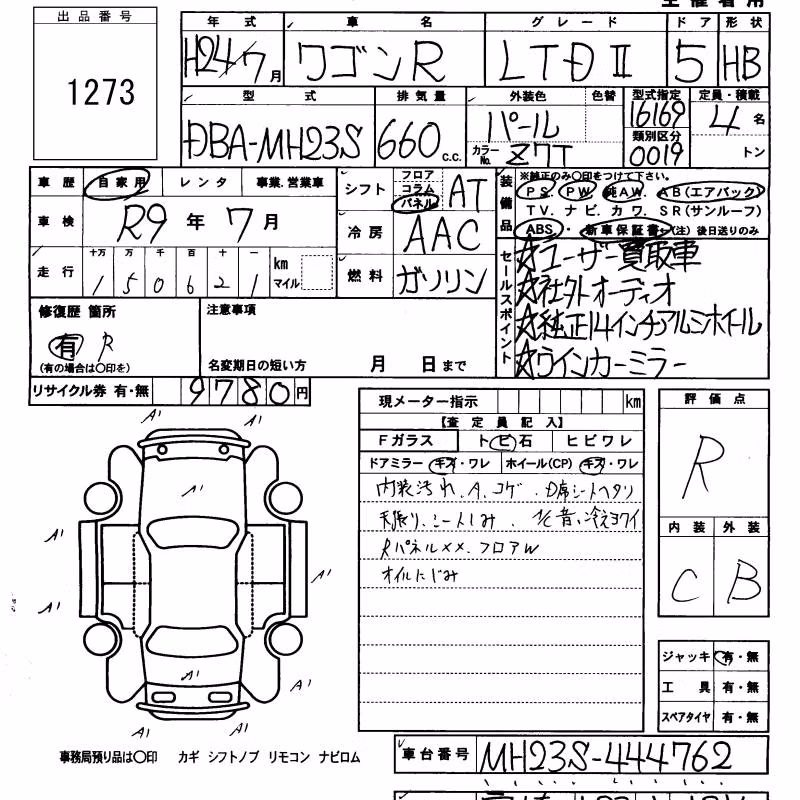 出品番号
1273
年式 車名 グレード ドア 形状
H24/7月 ワゴンR LTD II 5 HB
型式 排気量 外装色 色替 型式指定 定員・積載
16169
DBA-MH23S 660c.c. パール 類別区分 4名
カラーNo. Z7T 0019 トン
車歴 自家用 レンタ 事業.営業車
シフト フロア コラム パネル AT
装備品 ※純正のみ○印をつけて下さい。
PS. PW. 純AW. AB(エアバック)
TV. ナビ. カワ. SR(サンルーフ)
ABS・新車保証書・(注)後日送りのみ
車検 R9年 7月
冷房 AAC
走行 十万 万 千 百 十 一 km マイル
150621
燃料 ガソリン
セールスポイント
☆ユーザー買取車
☆社外オーディオ
☆純正14インチアルミホイール
☆ウインカーミラー
修復歴 箇所
有 R
(有の場合は○印を)
注意事項
名変期日の短い方 月 日まで
リサイクル券 有・無 9780円
現メーター指示 km
【査定員記入】
Fガラス トビ石 ヒビワレ
ドアミラー キズ・ワレ ホイール(CP) キズ・ワレ
内装汚れ.A.コゲ.D席シートヘタリ
天張り.シートしみ.
Rパネル××.フロアW
オイルにじみ
評価点
R
内装 外装
C B
ジャッキ 有・無
工具 有・無
スペアタイヤ 有・無
A1 A1
A1
A1
A1
A1 A1
A1
A1
A1 A1
事務局預り品は○印 カギ シフトノブ リモコン ナビロム
車台番号 MH23S-444762